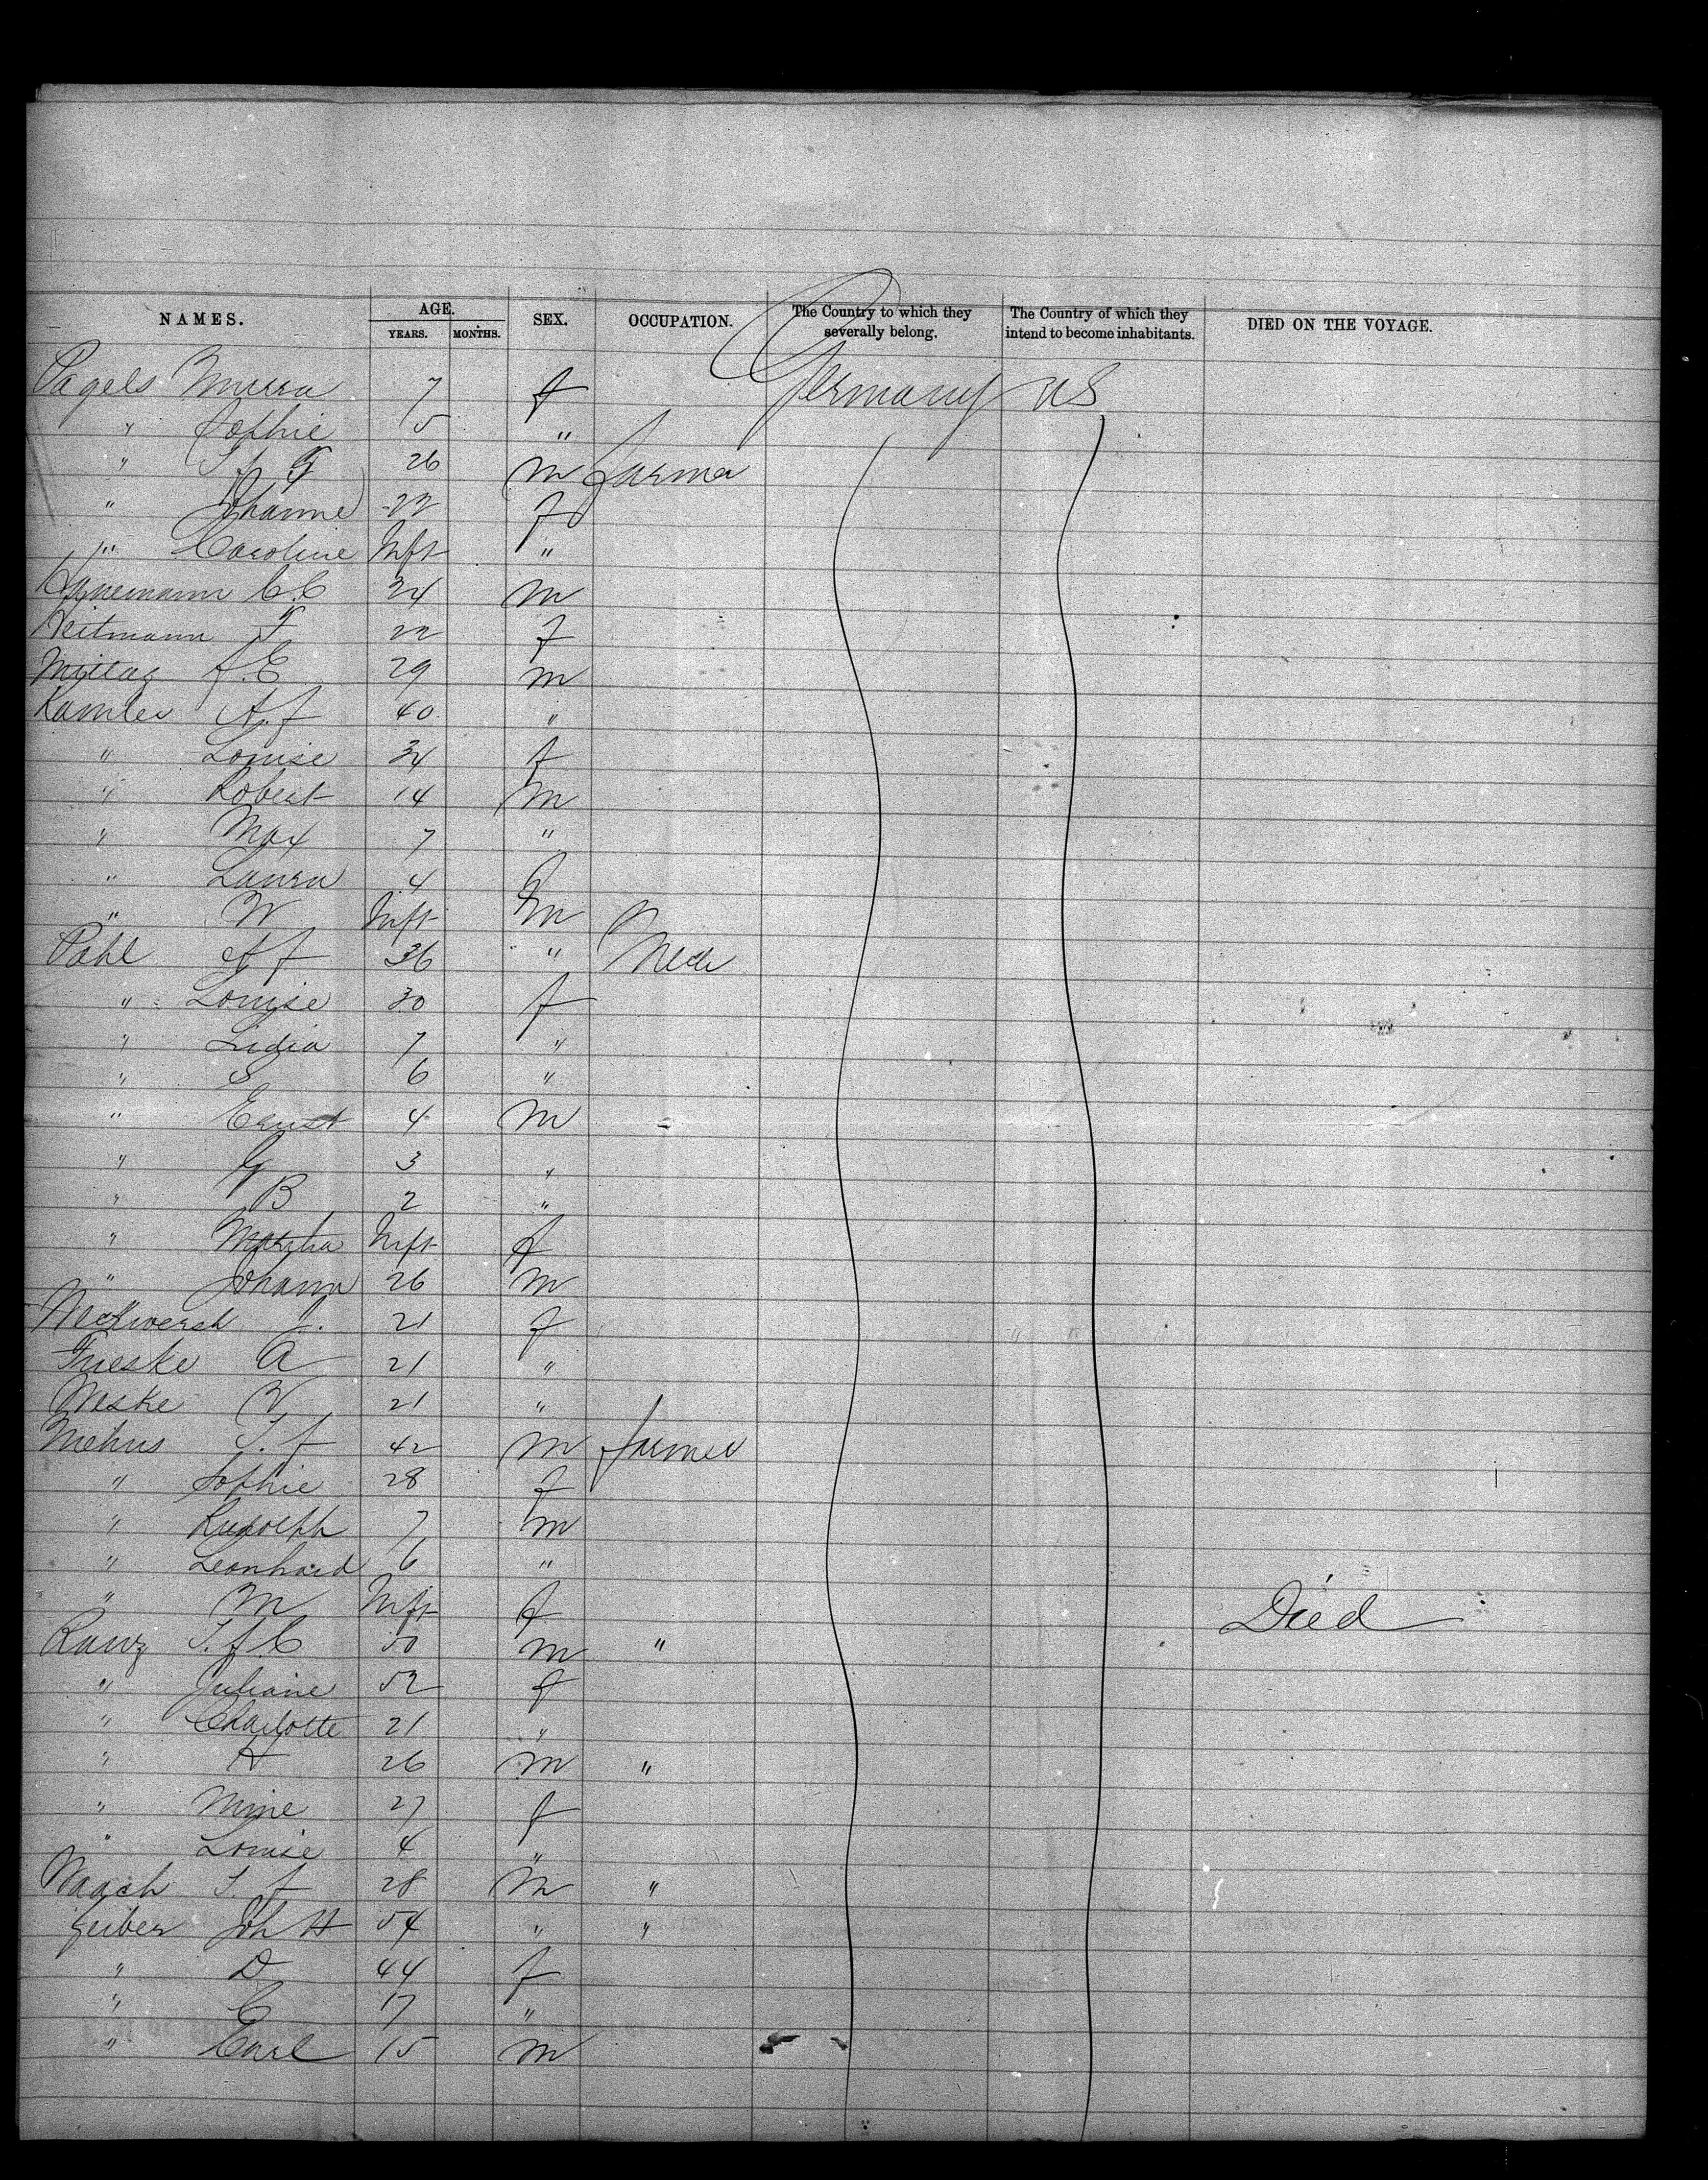 NAMES. AGE. YEARS. MONTHS. SEX. OCCUPATION. The Country to which they severally belong. The Country of which they intend to become inhabitants. DIED ON THE VOYAGE.
Pagels 7 f Germany US
" Sophie 5 "
" 26 m farmer
" Johanne 22 f
" Caroline Inft "
C.C 24 m
Heitmann F 22 f
29 m
A. f 40 "
" Louise 34 f
" Robert 14 m
" Max 7 "
" Laura 4 f
" W Inft m
Pahl A f 36 " Mech
" Louise 30 f
" Lidia 7 "
" S 6 "
" Ernst 4 m
" G 3 "
" B 2 "
" Martha Inft f
" Johann 26 m
J. 21 f
Frieske A 21 "
Weske W 21 "
Mehus J. f 42 m farmer
" Sophie 28 f
" Rudolph 7 m
" Leonhard 6 "
" M Inft f Died
J. f. C 50 m "
" Juliane 52 f
" Charlotte 21 "
" H 26 m "
" Mine 27 f
" Louise 4 "
J. f 28 m "
Geiber Joh H 54 " "
" D 44 f
" C 17 "
" Carl 15 m